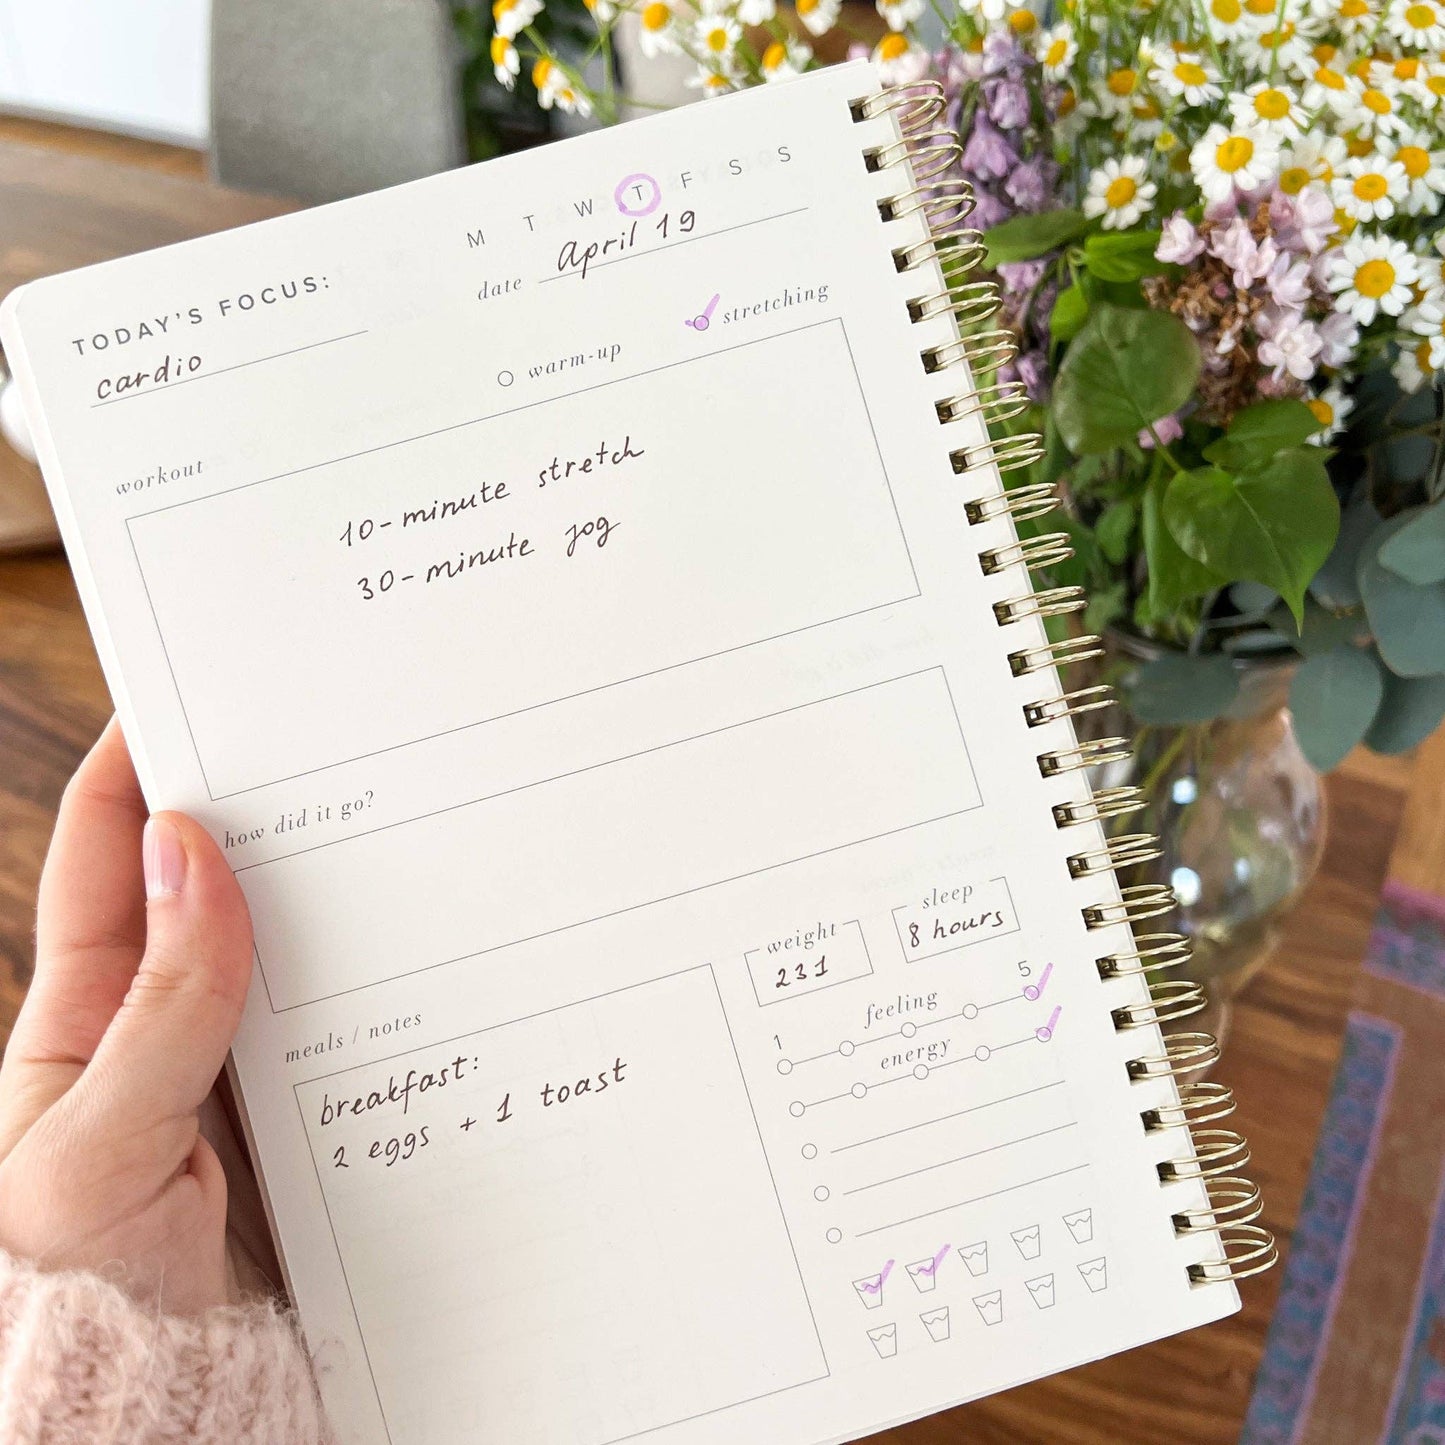 M T W T F S S
date April 19
TODAY'S FOCUS:
cardio
warm-up stretching
workout
10-minute stretch
30-minute jog
how did it go?
meals / notes
breakfast:
2 eggs + 1 toast
weight
231
sleep
8 hours
1 feeling 5
energy